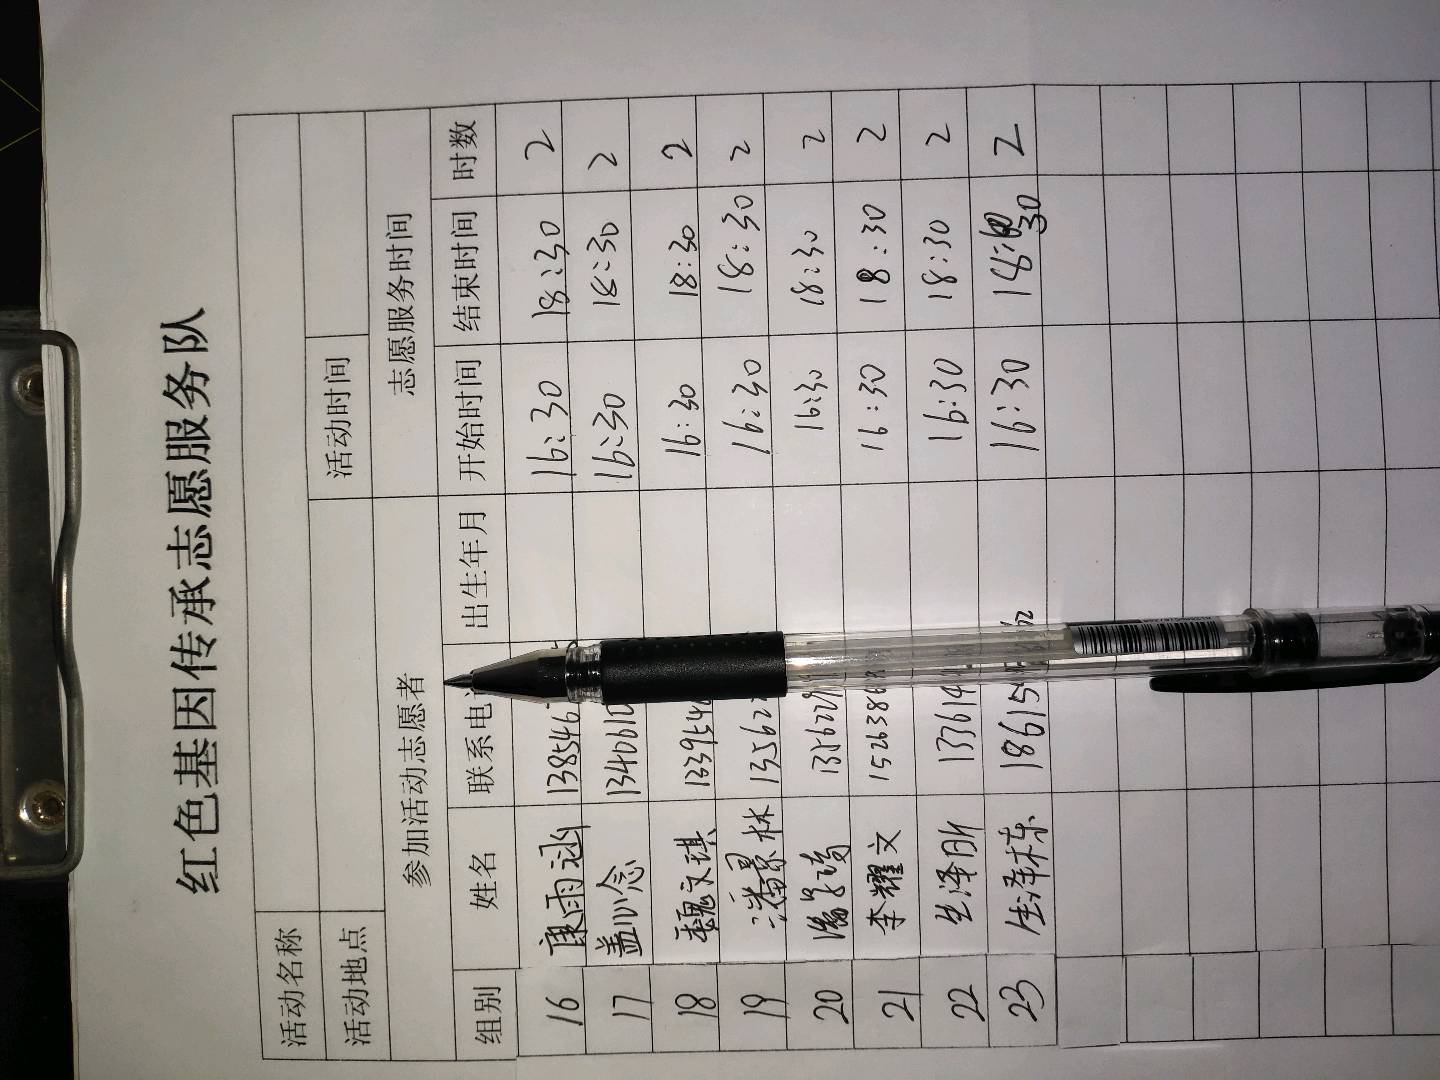 红色基因传承志愿服务队
活动名称
活动地点 活动时间
参加活动志愿者 志愿服务时间
组别 姓名 联系电 出生年月 开始时间 结束时间 时数
16 康雨涵 138546 16:30 18:30 2
17 盖心念 1340610 16:30 18:30 2
18 魏文琪 1339546 16:30 18:30 2
19 潘景林 13562 16:30 18:30 2
20 1356229 16:30 18:30 2
21 李耀文 1526386 16:30 18:30 2
22 生泽昕 133614 16:30 18:30 2
23 生泽栋 18615 16:30 18:30 2